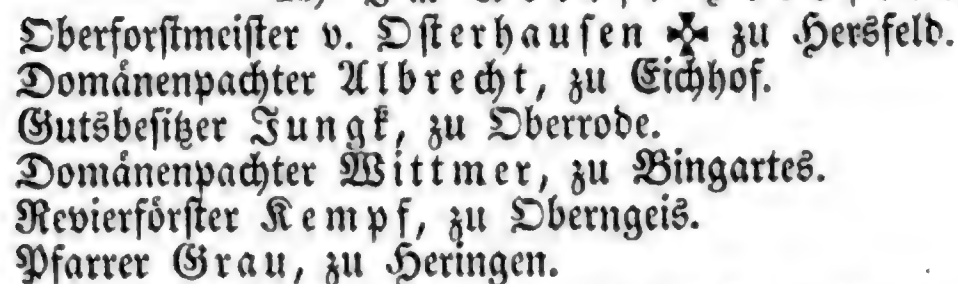 Oberforstmeister v. Osterhausen ✠ zu Hersfeld.
Domänenpachter Albrecht, zu Eichhof.
Gutsbesitzer Jungk, zu Oberrode.
Domänenpachter Wittmer, zu Bingartes.
Revierförster Kempf, zu Oberngeis.
Pfarrer Grau, zu Heringen.